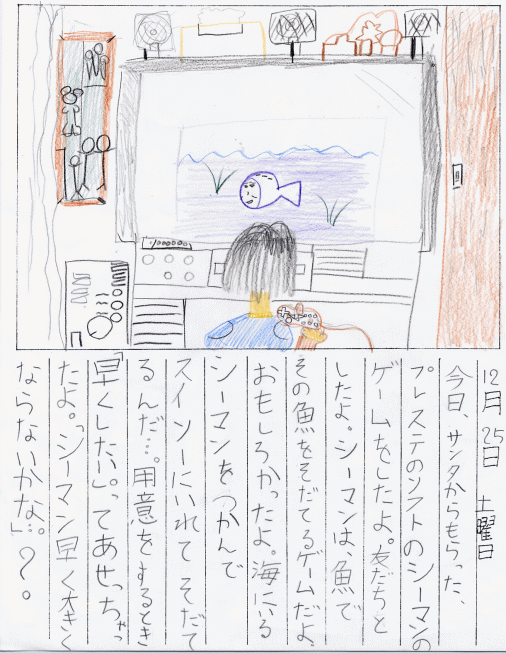 12月 25日 土曜日
今日、サンタからもらった、
プレステのソフトのシーマンの
ゲームをしたよ。友だちと
したよ。シーマンは魚で
その魚をそだてるゲームだよ。
おもしろかったよ。海にいる
シーマンをつかんで
スイソーにいれてそだて
るんだ…。用意をするとき
「早くしたい」ってあせっちゃっ
たよ。「シーマン早く大きく
ならないかな」…?。